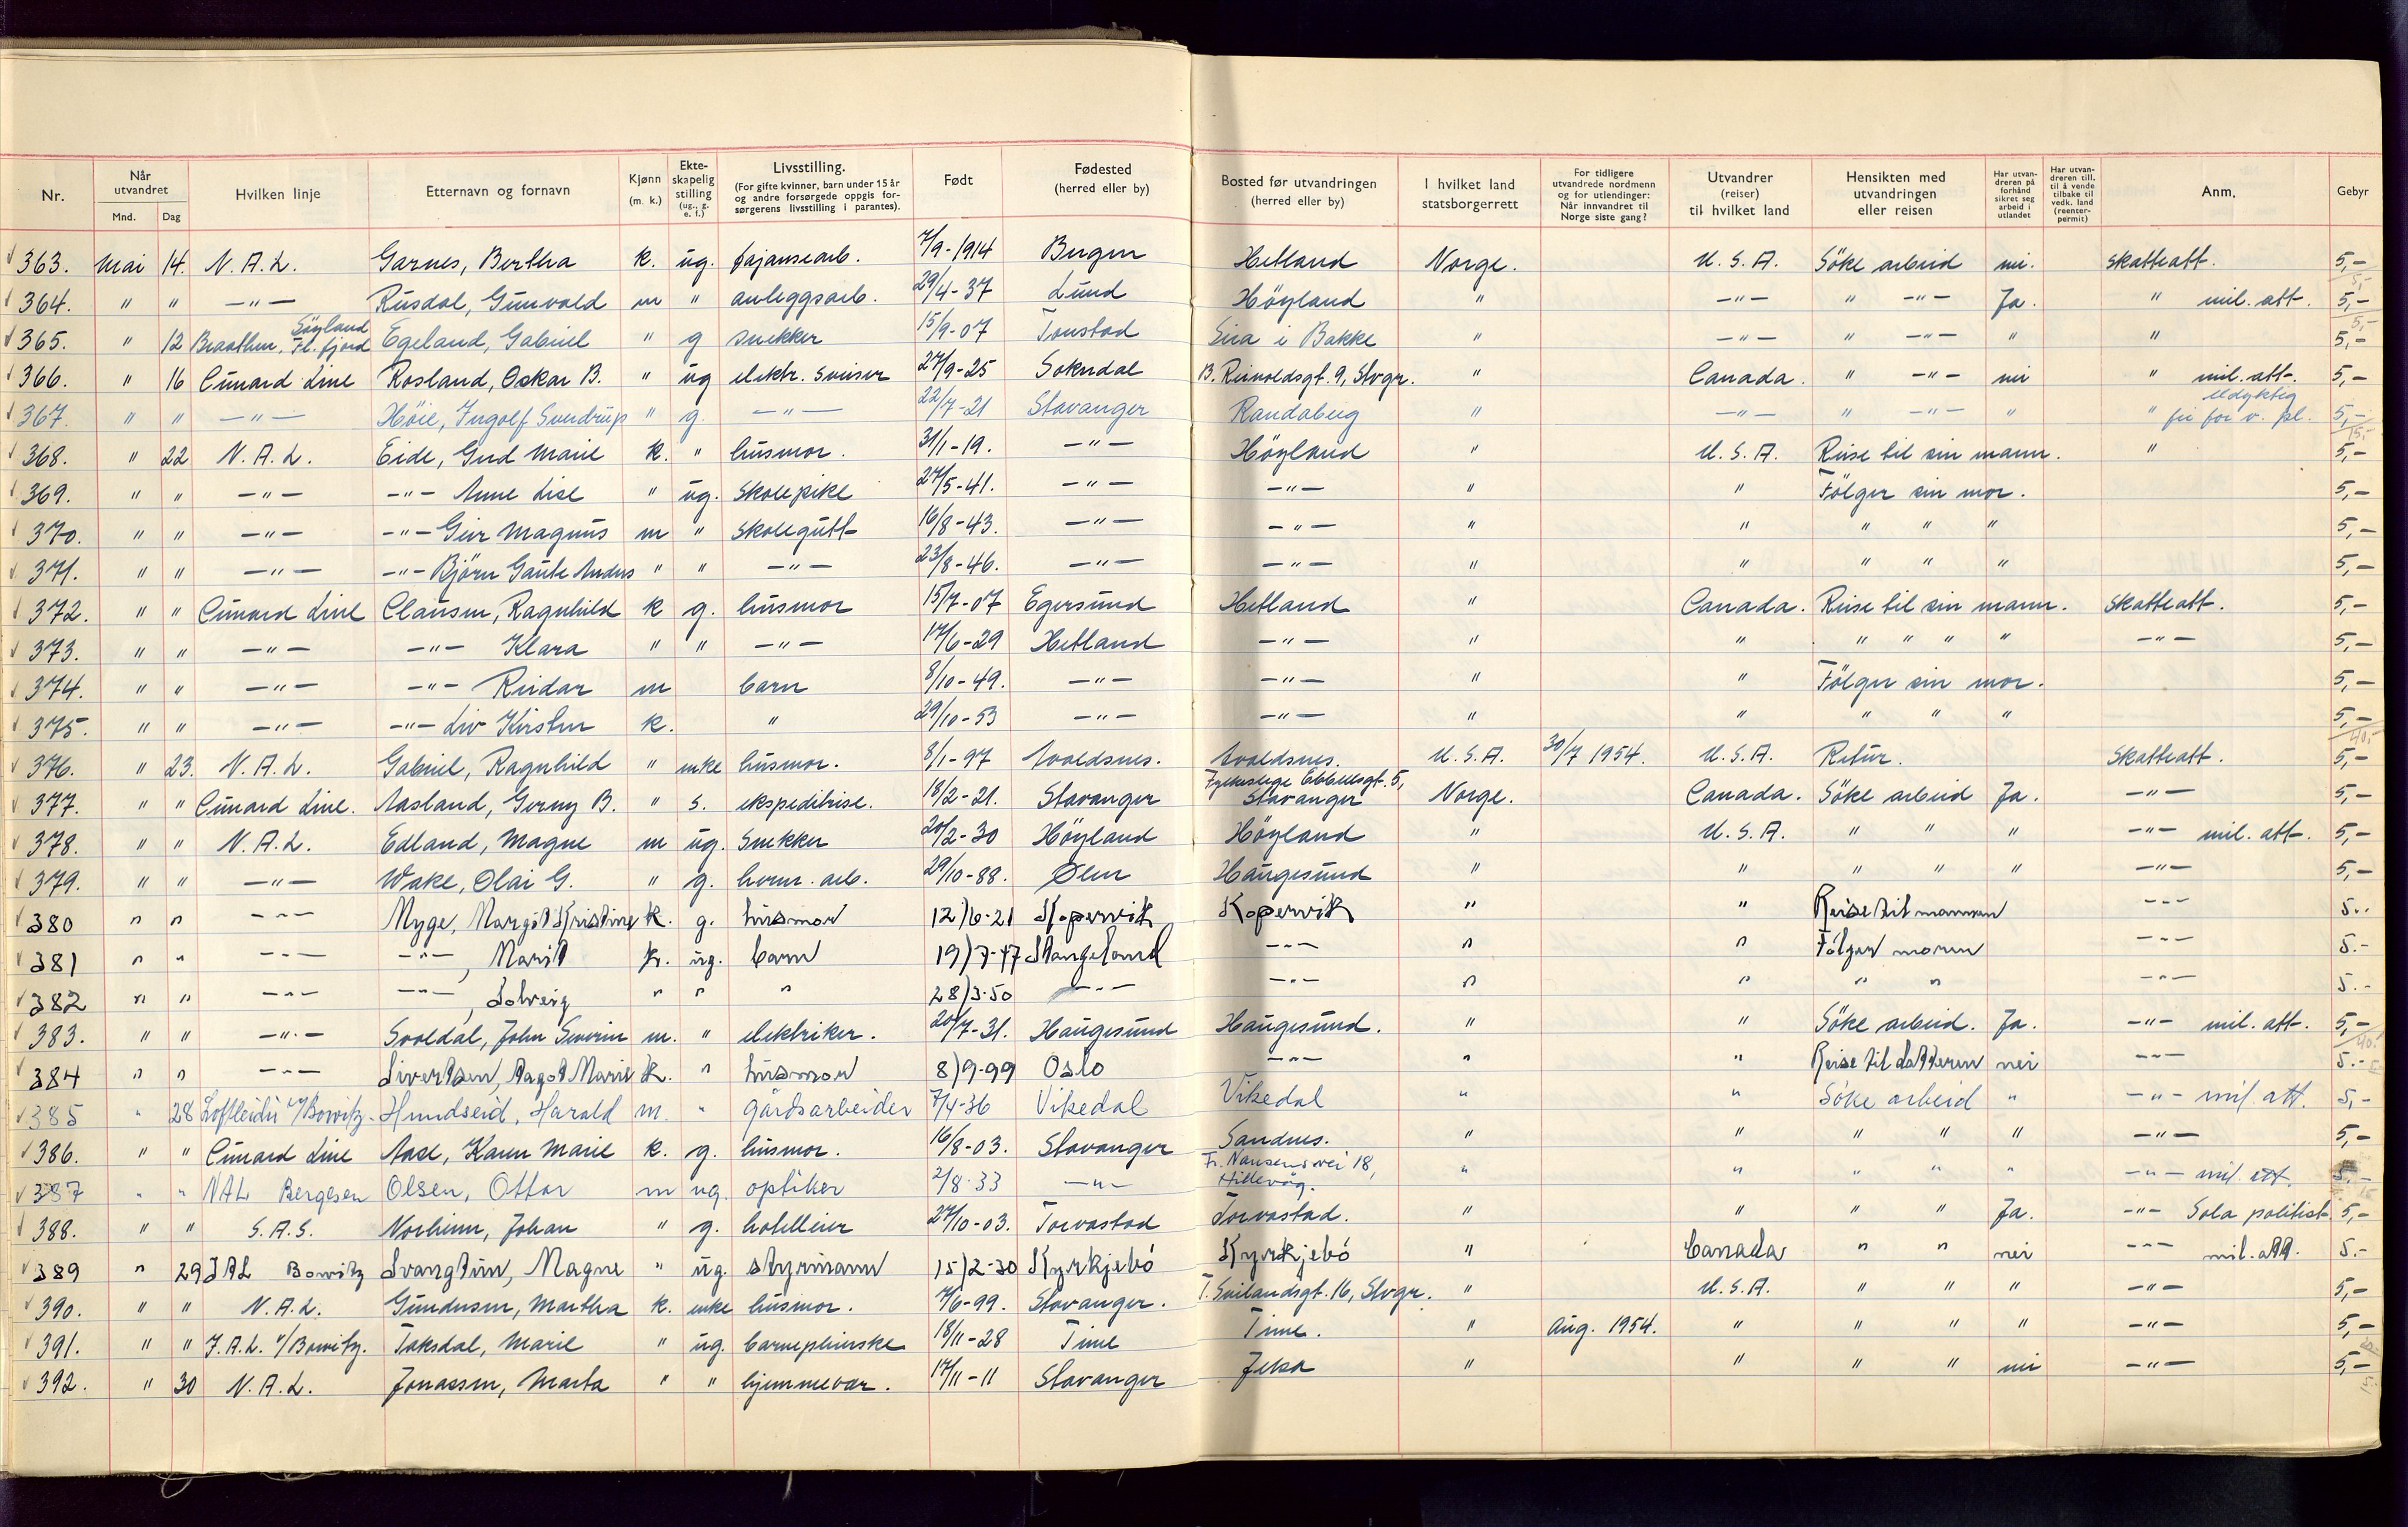 Nr. | Når utvandret Mnd. Dag | Hvilken linje | Etternavn og fornavn | Kjønn (m. k.) | Ekteskapelig stilling (ug., g. e. f.) | Livsstilling. (For gifte kvinner, barn under 15 år og andre forsørgede oppgis forsørgerens livsstilling i parantes). | Født | Fødested (herred eller by) | Bosted før utvandringen (herred eller by) | I hvilket land statsborgerrett | For tidligere utvandrede nordmenn og for utlendinger: Når innvandret til Norge siste gang? | Utvandrer (reiser) til hvilket land | Hensikten med utvandringen eller reisen | Har utvandreren på forhånd sikret seg arbeid i utlandet | Har utvandreren till. til å vende tilbake til vedk. land (reenterpermit) | Anm. | Gebyr
363. Mai 14. N.A.L. Garnes, Bertha k. ug. fajansearb. 7/9-1914 Bergen Hetland Norge. U.S.A. Söke arbeid nei. skatteatt. 5,-
364. " " -"- Rusdal, Gunvald m " anleggsarb. 29/4-37 Lund Höyland " -"- " -"- Ja. " mil. att. 5,-
365. " 12 Braathen, Söyland Fl.fjord Egeland, Gabriel " g snekker 15/9-07 Tonstad Sira i Bakke " -"- " -"- " " 5,-
366. " 16 Cunard Line Rosland, Oskar B. " ug elektr. sveiser 27/9-25 Sokndal B. Reinoldsgt. 9, Stvgr. " Canada. " -"- nei " mil. att. 5,-
367. " " -"- Höie, Ingolf Sverdrup " g. -"- 22/7-21 Stavanger Randaberg " -"- " -"- " " udyktig fri for v. pl. 5,-
368. " 22 N.A.L. Eide, Gud Marie k. " husmor. 31/1-19. -"- Höyland " U.S.A. Reise til sin mann. " 5,-
369. " " -"- -"- Anne Lise " ug. skolepike 27/5-41. -"- -"- " " Fölger sin mor. 5,-
370. " " -"- -"- Geir Magnus m " skolegutt 16/8-43. -"- -"- " " " " " 5,-
371. " " -"- -"- Björn Gaute Anders " " -"- 23/8-46. -"- -"- " " " " " 5,-
372. " " Cunard Line Clausen, Ragnhild k g. husmor 15/7-07 Egersund Hetland " Canada. Reise til sin mann. skatteatt. 5,-
373. " " -"- -"- Klara " " -"- 17/6-29 Hetland -"- " " " " " " -"- 5,-
374. " " -"- -"- Reidar m barn 8/10-49. -"- -"- " " Fölger sin mor. 5,-
375. " " -"- -"- Liv Kirsten k. " 29/10-53 -"- -"- " " " " " 5,-
376. " 23. N.A.L. Gabriel, Ragnhild " enke husmor. 8/1-97 Avaldsnes. Avaldsnes. U.S.A. 30/7 1954. U.S.A. Retur. Skatteatt. 5,-
377. " " Cunard Line. Aasland, Gerny B. " s. ekspeditrise. 18/2-21. Stavanger Ebbellsgt. 5, Stavanger Norge. Canada. Söke arbeid Ja. -"- 5,-
378. " " N.A.L. Edland, Magne m ug. Snekker 20/2-30 Höyland Höyland " U.S.A. " " " -"- mil. att. 5,-
379. " " -"- Wake, Olai G. " g. herm. arb. 29/10-88. Ølen Haugesund " " " " " -"- 5,-
380 " " -"- Myge, Margit Kristine k. g. husmor 12/6-21 Kopervik Kopervik " " Reise til mannen -"- 5.-
381 " " -"- -"-, Marit k. ug. barn 19/7-47 Stangeland -"- " " Fölger moren -"- 5.-
382 " " -"- -"-, Solveig " " " 28/3-50 -"- -"- " " " " -"- 5.-
383. " " -"- Svoldal, John Severin m. " elektriker. 20/7-31. Haugesund Haugesund. " " Söke arbeid. Ja. -"- mil. att. 5,-
384 " " -"- Sivertsen, Aagot Marie k. " husmor 8/9-99 Oslo -"- " " Reise til datteren nei -"- 5.-
385 " 28 Loftleidir v/Bowitz. Hundseid, Harald m. " gårdsarbeider 7/4-36 Vikedal Vikedal " " Söke arbeid " -"- mil. att. 5,-
386. " " Cunard Line Aase, Karen Marie k. g. husmor. 16/8-03. Stavanger Sandnes. " " " " " -"- 5,-
387 " " NAL Bergesen Olsen, Ottar m ug. optiker 2/8-33 -"- Fr. Nansensvei 18, Hillevåg. " " " " " -"- mil. att. 5.-
388. " " S.A.S. Norheim, Johan " g. hotelleier 27/10-03. Torvastad Torvastad. " " " " Ja. -"- Sola politist. 5,-
389 " 29 IAL Bowitz Svangtun, Magne " ug. styrmann 15/2-30 Kyrkjebö Kyrkjebö " Canada " " nei -"- mil. att. 5.-
390. " " N.A.L. Gundersen, Martha k. enke husmor. 7/6-99. Stavanger. T. Svilandsgt. 16, Stvgr. " U.S.A. " " " -"- 5,-
391. " " I.A.L. v/Bowitz. Taksdal, Marie " ug. barnepleierske 18/11-28 Time Time. " Aug. 1954. " " " " -"- 5,-
392. " 30 N.A.L. Jonassen, Marta " " hjemmevær. 17/11-11 Stavanger Jelsa " " " " nei -"- 5,-